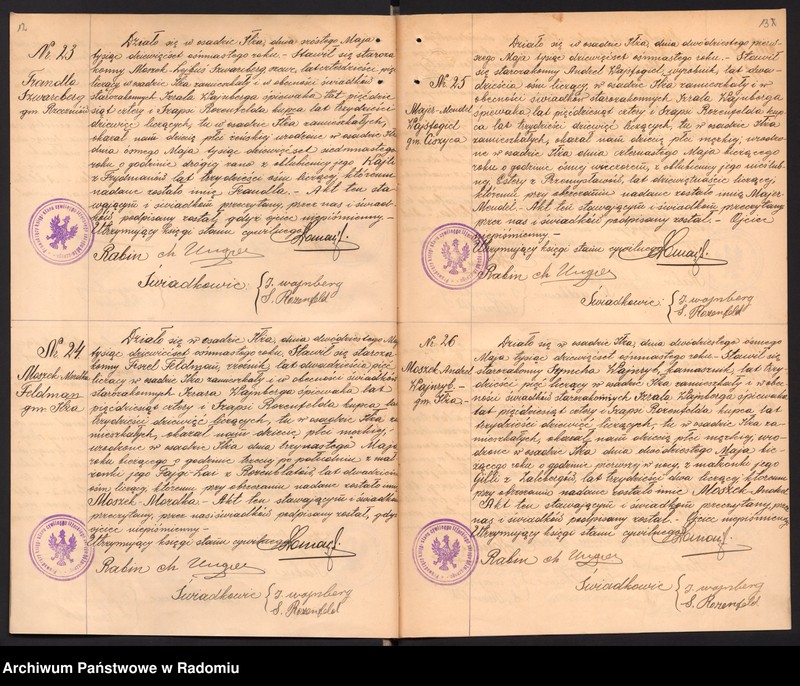 13
№ 23
Frandla
Szwarcberg
gm. Rzeczniów
Działo się w osadzie Iłża, dnia szóstego Maja
tysiąc dziewięćset ósmnastego roku. – Stawił się staroza
konny Moszek Lejbuś Szwarcberg, lat czterdzieści pięć
liczący w osadzie Iłża zamieszkały i w obecności świadków
starozakonnych Izraela Wajnberga śpiewaka lat pięćdzie
siąt cztery i Szapsi Rozenfelda kupca lat trzydzieści
dziewięć liczących, tu w osadzie Iłża zamieszkałych,
okazał nam dziecię płci żeńskiej urodzone w osadzie Iłża
dnia ósmego Maja tysiąc dziewięćset siedmnastego
roku o godzinie drugiej rano z oblubienicy jego Kajli
z Frydmanów lat trzydzieści ośm liczącej, któremu
nadane zostało imię Frandla. – Akt ten sta-
wającym i świadkom przeczytany, przez nas i świad-
ków podpisany został, gdyż ojciec niepiśmienny. –
Utrzymujący księgi stanu cywilnego
Rabin Ch Unger
Świadkowie { I. wajnberg
S. Rozenfeld
№ 24
Moszek Mordka
Feldman
gm. Iłża
Działo się w osadzie Iłża, dnia dwudziestego Maja
tysiąc dziewięćset ósmnastego roku. Stawił się staroza
konny Feldman, lat dwadzieścia pięć
liczący w osadzie Iłża zamieszkały i w obecności świadków
starozakonnych Izraela Wajnberga śpiewaka lat
pięćdziesiąt cztery i Szapsi Rozenfelda kupca lat
trzydzieści dziewięć liczących, tu w osadzie Iłża za
mieszkałych, okazał nam dziecię płci męzkiej,
urodzone w osadzie Iłża dnia trzynastego Maja
roku bieżącego o godzinie trzeciej po południu z mał
żonki jego z Rozenblatów lat dwadzieścia
ośm liczącej, któremu przy obrzezaniu nadane zostało imię
Moszek-Mordka – Akt ten stawającym i świadkom
przeczytany, przez nas i świadków podpisany został, gdyż
ojciec niepiśmienny. –
Utrzymujący księgi stanu cywilnego
Rabin Ch Unger
Świadkowie { I. wajnberg
S. Rozenfeld
№ 25
Majer-Mendel
Wajsfogiel
gm. Ciszyca
Działo się w osadzie Iłża, dnia dwudziestego pierw-
szego Maja tysiąc dziewięćset ósmnastego roku. – Stawił
się starozakonny Andzel Wajsfogiel, wyrobnik, lat dwa-
dzieścia ośm liczący, w osadzie Iłża zamieszkały i w
obecności świadków starozakonnych Izraela Wajnberga
śpiewaka lat pięćdziesiąt cztery i Szapsi Rozenfelda kup-
ca lat trzydzieści dziewięć liczących, tu w osadzie Iłża
zamieszkałych, okazał nam dziecię płci męzkiej, urodzo-
ne w osadzie Iłża dnia czternastego Maja bieżącego
roku o godzinie ósmej wieczorem, z oblubienicy jego nieślub-
nej, Estery z lat dziewiętnaście liczącej,
któremu przy obrzezaniu nadane zostało imię Majer
Mendel – Akt ten stawającym i świadkom przeczytany
przez nas i świadków podpisany został. – Ojciec
niepiśmienny –
Utrzymujący księgi stanu cywilnego
Rabin Ch Unger
Świadkowie { I. wajnberg
S. Rozenfeld
№ 26
Moszek Andzel
Wajnryb. –
gm. Iłża. –
Działo się w osadzie Iłża, dnia dwudziestego ósmego
Maja tysiąc dziewięćset ósmnastego roku – Stawił się
starozakonny Symcha Wajnryb, kamasznik, lat trzy
dzieści pięć liczący w osadzie Iłża zamieszkały i w obec
ności świadków starozakonnych Izraela Wajnberga śpiewaka
lat pięćdziesiąt cztery i Szapsi Rozenfelda kupca lat
trzydzieści dziewięć liczących, tu w osadzie Iłża za
mieszkałych, okazał nam dziecię płci męzkiej, uro
dzone w osadzie Iłża dnia dwudziestego Maja bie-
żącego roku o godzinie pierwszej w nocy, z małżonki jego
Gitli z Zalcbergów lat trzydzieści dwa liczącej któremu
przy obrzezaniu nadane zostało imię Moszek-Andzel
Akt ten stawającym i świadkom przeczytany, przez
nas i świadków podpisany został. – Ojciec niepiśmienny
Utrzymujący księgi stanu cywilnego
Rabin Ch Unger
Świadkowie { I. wajnberg
S. Rozenfeld
Archiwum Państwowe w Radomiu